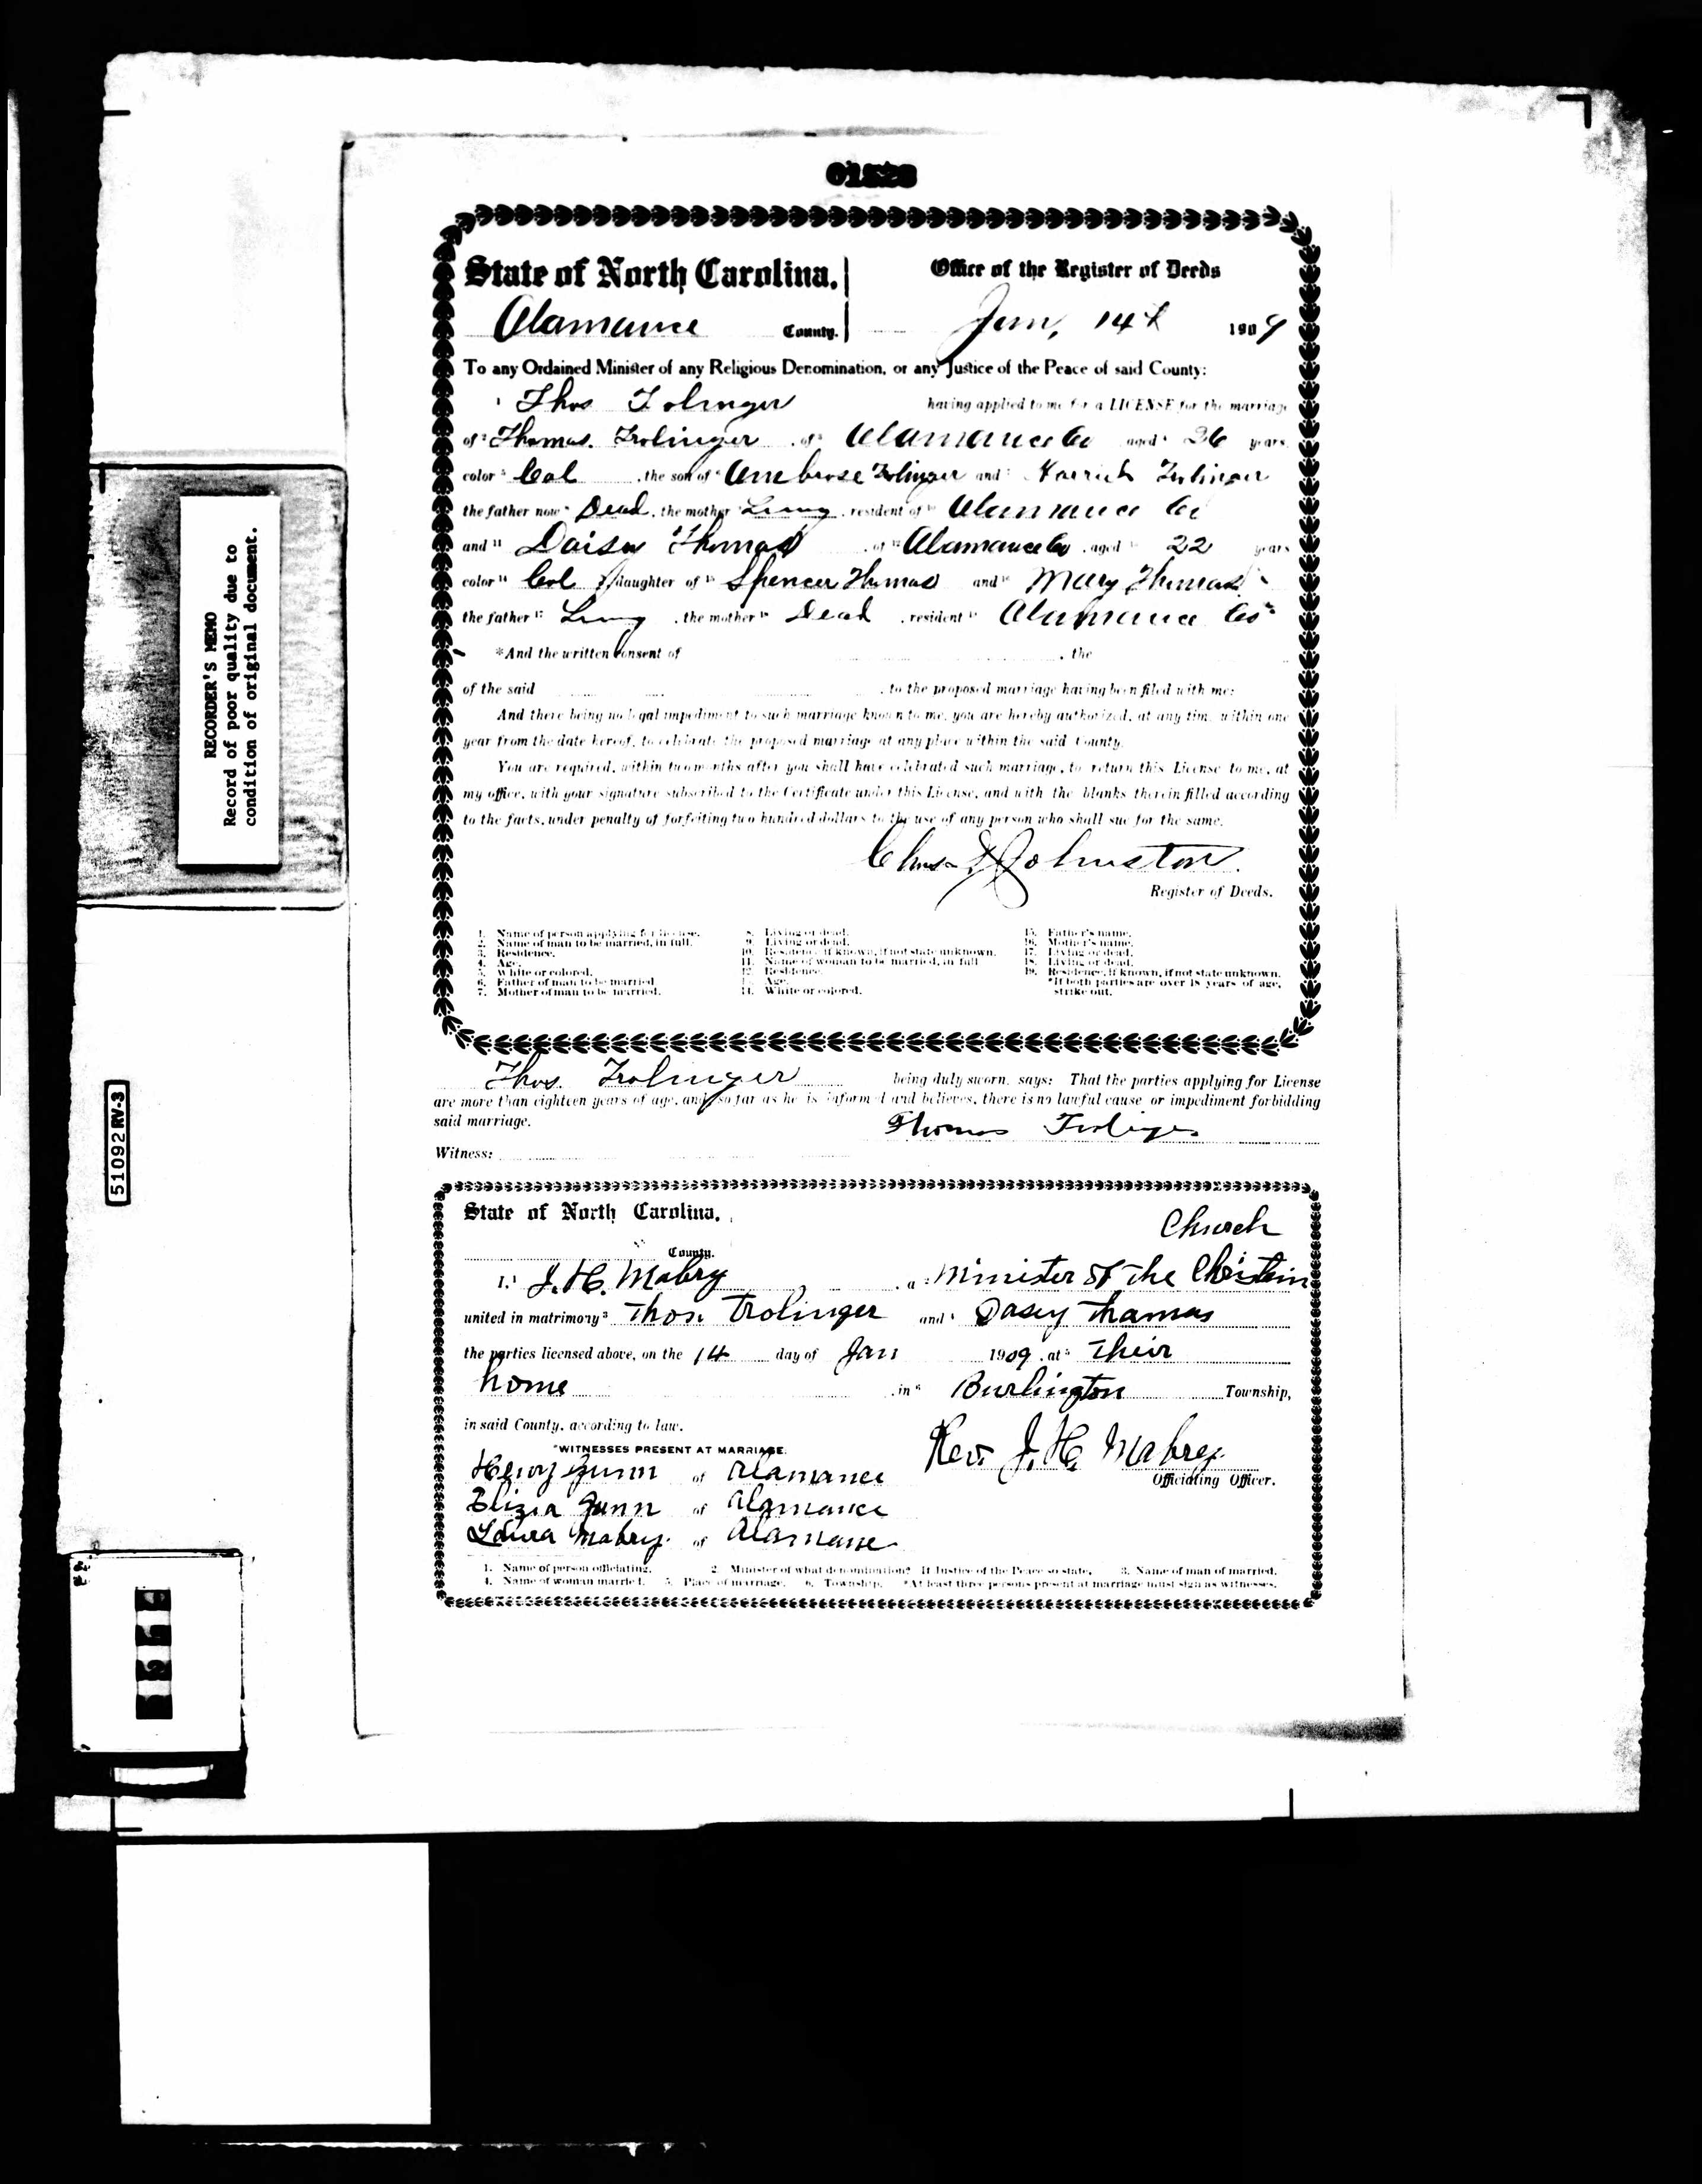 State of North Carolina. Office of the Register of Deeds
Alamance County. Jan, 14th 1909
To any Ordained Minister of any Religious Denomination, or any Justice of the Peace of said County:
Thos Tolinger having applied to me for a LICENSE for the marriage
of Thomas. Trolinger of Alamance Co aged 26 years
color Col the son of Ambrose Trolinger and Harriet Trolinger
the father now Dead, the mother Living, resident of Alamance Co
and Daisy Thomas of Alamance Co aged 22 years
color Col daughter of Spencer Thomas and Mary Thomas
the father Living, the mother Dead, resident Alamance Co
*And the written consent of , the
of the said , to the proposed marriage having been filed with me:
And there being no legal impediment to such marriage known to me, you are hereby authorized, at any time within one
year from the date hereof, to celebrate the proposed marriage at any place within the said County.
You are required, within two months after you shall have celebrated such marriage, to return this License to me, at
my office, with your signature subscribed to the Certificate under this License, and with the blanks therein filled according
to the facts, under penalty of forfeiting two hundred dollars to the use of any person who shall sue for the same.
Chas D Johnston
Register of Deeds.
1. Name of person applying for license. 8. Living or dead. 15. Father's name.
2. Name of man to be married, in full. 9. Living or dead. 16. Mother's name.
3. Residence. 10. Residence, if known, if not state unknown. 17. Living or dead.
4. Age. 11. Name of woman to be married, in full 18. Living or dead.
5. White or colored. 12. Residence. 19. Residence, if known, if not state unknown.
6. Father of man to be married 13. Age. *If both parties are over 18 years of age,
7. Mother of man to be married. 14. White or colored. strike out.
Thos. Trolinger being duly sworn, says: That the parties applying for License
are more than eighteen years of age, and so far as he is informed and believes, there is no lawful cause or impediment forbidding
said marriage. Thomas Trolinger
Witness:
State of North Carolina,
Church
County.
I, J. H. Mabry, a Minister of The Christein
united in matrimony Thos Trolinger and Dasey Thamas
the parties licensed above, on the 14 day of Jan 1909, at Their
home in Burlington Township,
in said County, according to law.
*WITNESSES PRESENT AT MARRIAGE.
Rev. J. H. Mabrey
Henry Gunn of Alamance
Officiating Officer.
Elizia Gunn of Alamance
Laura Mabry. of Alamane
1. Name of person officiating. 2. Minister of what denomination? If Justice of the Peace so state. 3. Name of man of married.
4. Name of woman married. 5. Place of marriage. 6. Township. *At least three persons present at marriage must sign as witnesses.
RECORDER'S MEMO
Record of poor quality due to
condition of original document.
51092 RV-3